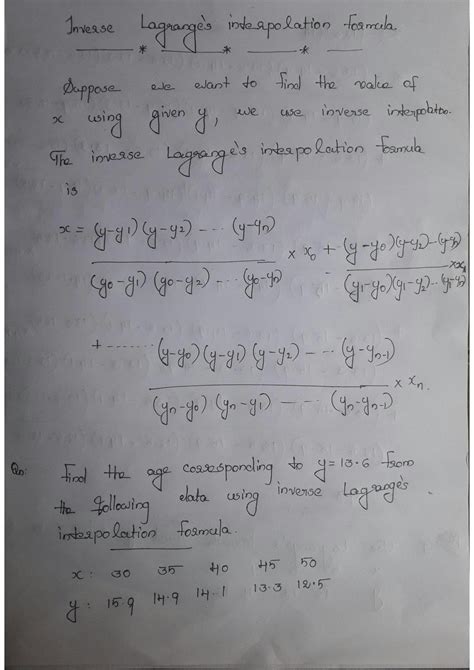 Inverse Lagrange's interpolation formula
Suppose we want to find the value of
x using given y, we use inverse interpolation.
The inverse Lagrange's interpolation formula
is
x = (y-y1) (y-y2) --- (y-yn) / (y0-y1) (y0-y2) --- (y0-yn) × x0 + (y-y0)(y-y2)--(y-yn) / (y1-y0)(y1-y2)--(y1-yn) × x1
+ ------ (y-y0) (y-y1) (y-y2) --- (y-yn-1) / (yn-y0) (yn-y1) --- (yn-yn-1) × xn.
Qn: Find the age corresponding to y=13.6 from
the following data using inverse Lagrange's
interpolation formula.
x: 30 35 40 45 50
y: 15.9 14.9 14.1 13.3 12.5